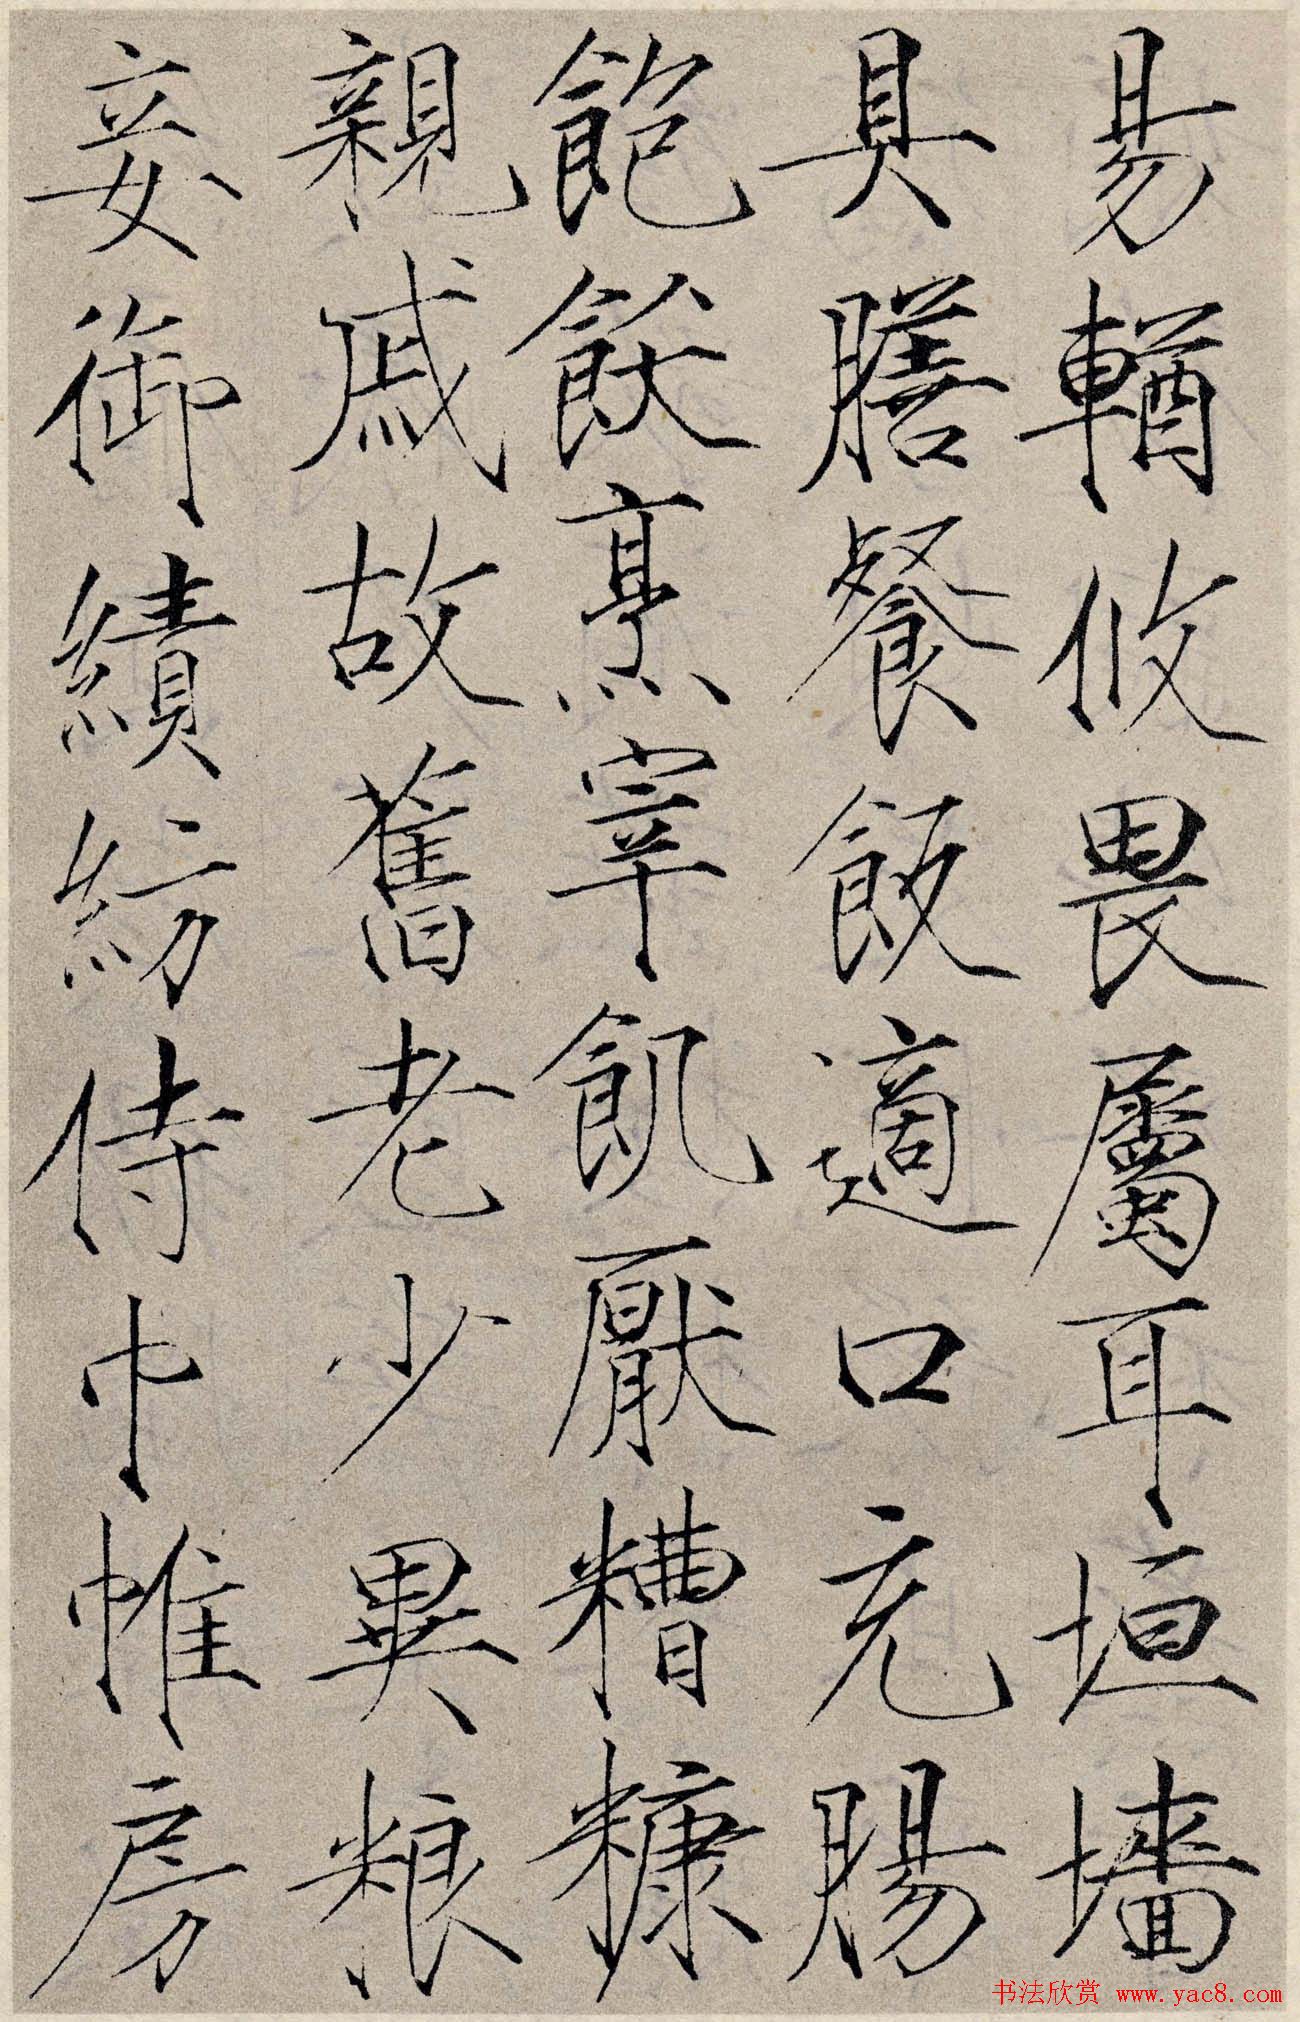 易輶攸畏屬耳垣墻
具膳餐飯適口充腸
飽飫烹宰飢厭糟糠
親戚故舊老少異粮
妾御績紡侍巾帷房
书法欣赏 www.yac8.com